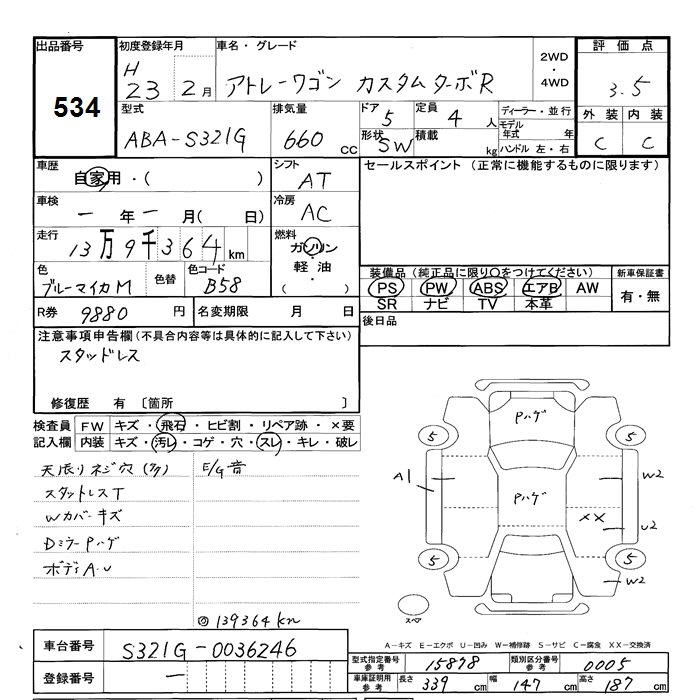 出品番号 初度登録年月 車名・グレード 2WD・4WD 評価点
534 H23 2月 アトレーワゴン カスタムターボR 3.5
型式 排気量 ドア 5 定員 4人 ディーラー・並行 外装 内装
ABA-S321G 660cc 形状 SW 積載 kg モデル年式 年 ハンドル 左・右 C C
車歴 自家用・( ) シフト AT セールスポイント (正常に機能するものに限ります)
車検 一年一月( 日) 冷房 AC
走行 13万9千364km 燃料 ガソリン
軽油・( )
色 ブルーマイカM 色替 色コード B58
装備品 (純正品に限り〇をつけてください) 新車保証書
PS PW ABS エアB AW 有・無
SR ナビ TV 本革
R券 9880円 名変期限 月 日 後日品
注意事項申告欄(不具合内容等は具体的に記入して下さい)
スタッドレス
修復歴 有 〔箇所 〕
検査員 FW キズ・飛石・ヒビ割・リペア跡・×要
記入欄 内装 キズ・汚レ・コゲ・穴・スレ・キレ・破レ
天張りネジ穴 E/G音
スタットレスT
Wカバーキズ
DミラーPハゲ
ボディA.U
◎139364km
Pハゲ
5 5
A1 Pハゲ W2
XX U2
5 5
W2
スペア
A-キズ E-エクボ U-凹み W-補修跡 S-サビ C-腐食 XX-交換済
車台番号 S321G-0036246
型式指定番号 参考 15878 類別区分番号 参考 0005
登録番号 一
車庫証明用 参考 長さ 339cm 幅 147cm 高さ 187cm